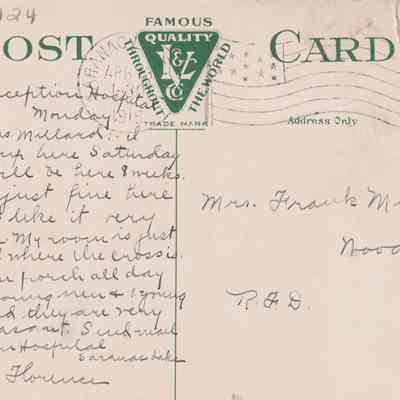 124
FAMOUS
QUALITY
THROUGHOUT THE WORLD
TRADE MARK
OST CARD
ANAC
APR
191
Address Only
ception Hospital
Monday
s Millard: I
up here Saturday
ill be here 8 weeks.
just fine here
like it very
My room is just
where the cross is.
porch all day
young men & 1 young
d they are very
asant. Send mail
Hospital
Saranac Lake
Florence
Mrs. Frank M
Wood
R. F. D.